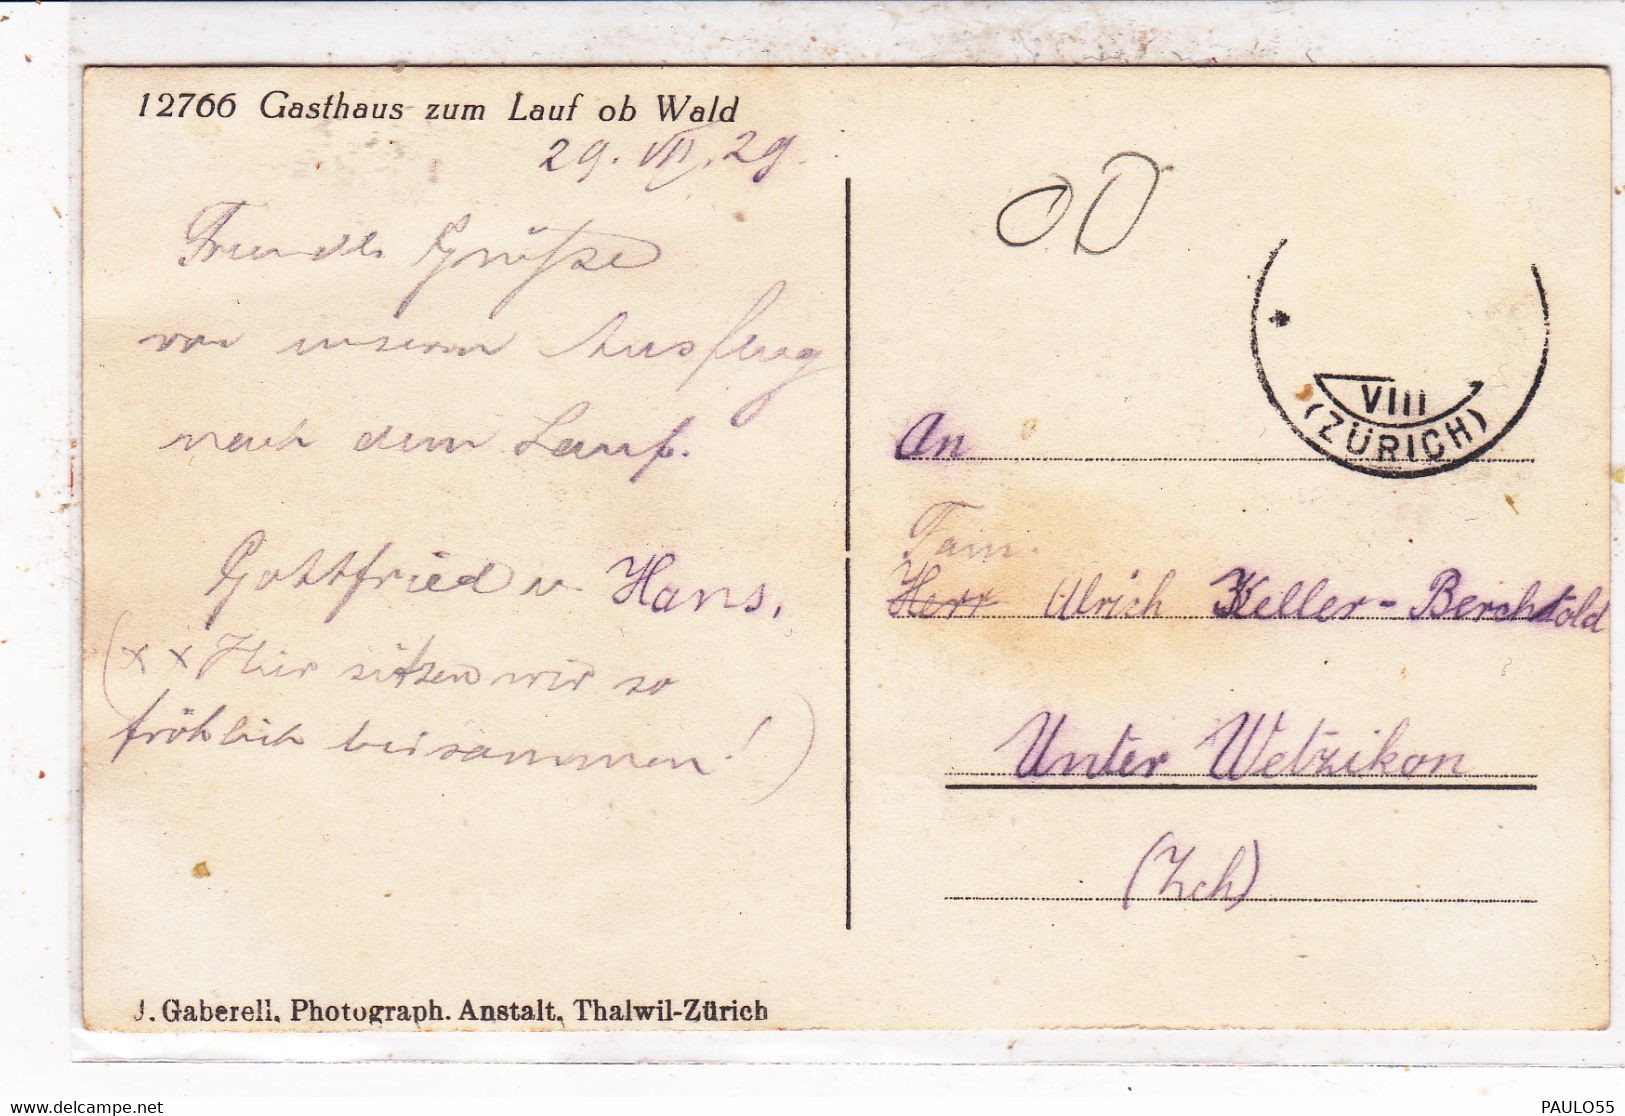 12766 Gasthaus zum Lauf ob Wald
29. VII. 29.
Freundl. Grüße
von unserm Ausflug
nach dem Lauf.
Gottfried u. Hans.
(x x Hier sitzen wir so
fröhlich beisammen!)
J. Gaberell, Photograph. Anstalt, Thalwil-Zürich
VIII
(ZÜRICH)
An
Fam.
Herr Ulrich Keller-Berchtold
Unter Wetzikon
(Zch)
delcampe.net
PAULO55